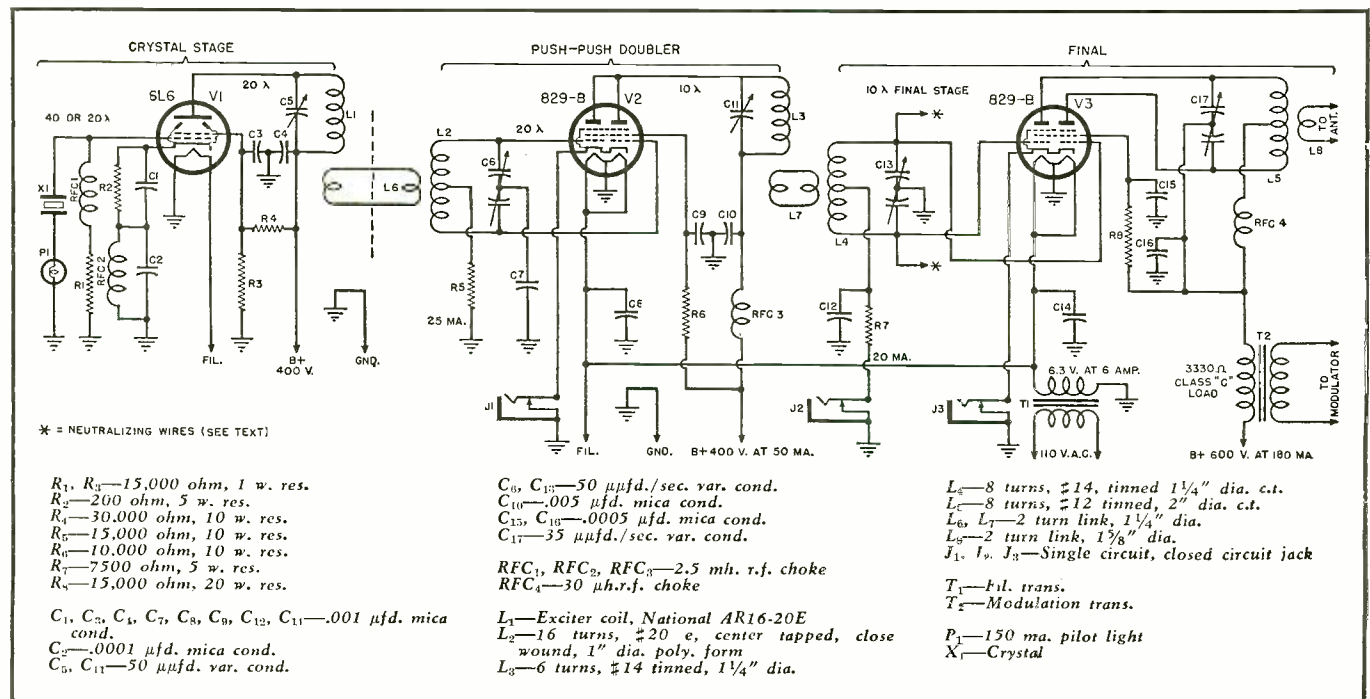 CRYSTAL STAGE
PUSH-PUSH DOUBLER
FINAL
6L6
V1
20 λ
C5
L1
40 OR 20λ
RFC1
R2
C1
C3
C4
X1
P1
R1
RFC2
C2
R4
R3
FIL.
B+
400 V.
GND.
L6
L2
20 λ
829-B
V2
10 λ
C11
L3
C6
R5
25 MA.
C7
C9
C10
C8
R6
RFC 3
J1
FIL.
GND.
B+400 V. AT 50 MA.
L7
10 λ FINAL STAGE
*
829-B
V3
C17
TO
ANT.
L8
L5
C13
L4
*
C15
C16
R8
RFC 4
C12
R7
20 MA.
C14
6.3 V. AT 6 AMP.
T1
110 V.A.C.
J2
J3
T2
3330Ω
CLASS "C"
LOAD
TO
MODULATOR
B+ 600 V. AT 180 MA.
* = NEUTRALIZING WIRES (SEE TEXT)
R1, R3—15,000 ohm, 1 w. res.
R2—200 ohm, 5 w. res.
R4—30.000 ohm, 10 w. res.
R5—15,000 ohm, 10 w. res.
R6—10.000 ohm, 10 w. res.
R7—7500 ohm, 5 w. res.
R8—15,000 ohm, 20 w. res.
C1, C3, C4, C7, C8, C9, C12, C14—.001 μfd. mica
cond.
C2—.0001 μfd. mica cond.
C5, C11—50 μμfd. var. cond.
C6, C13—50 μμfd./sec. var. cond.
C10—.005 μfd. mica cond.
C15, C16—.0005 μfd. mica cond.
C17—35 μμfd./sec. var. cond.
RFC1, RFC2, RFC3—2.5 mh. r.f. choke
RFC4—30 μh.r.f. choke
L1—Exciter coil, National AR16-20E
L2—16 turns, #20 e, center tapped, close
wound, 1" dia. poly. form
L3—6 turns, #14 tinned, 1¼" dia.
L4—8 turns, #14, tinned 1¼" dia. c.t.
L5—8 turns, #12 tinned, 2" dia. c.t.
L6, L7—2 turn link, 1¼" dia.
L8—2 turn link, 1⅝" dia.
J1, J2, J3—Single circuit, closed circuit jack
T1—Fil. trans.
T2—Modulation trans.
P1—150 ma. pilot light
X1—Crystal